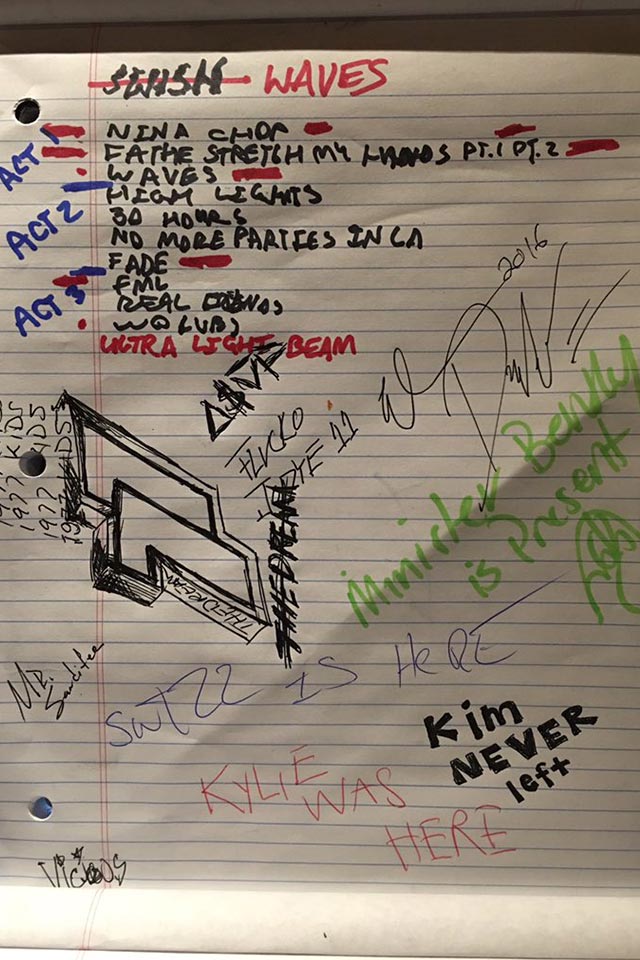 SWISH WAVES
ACT 1
NINA CHOP
FATHE STRETCH MY HANDS PT.1 PT.2
WAVES
ACT 2
HIGH LIGHTS
30 HOURS
NO MORE PARTIES IN LA
FADE
ACT 3
FML
REAL FRIENDS
WOLVES
ULTRA LIGHT BEAM
2016
1977 KIDS
1977 KIDS
1977 KIDS
THEDREAM
THEDREAM
Minister Bently
is Present
SWIZZ IS HERE
MR.
Kim
NEVER
left
KYLIE
WAS
HERE